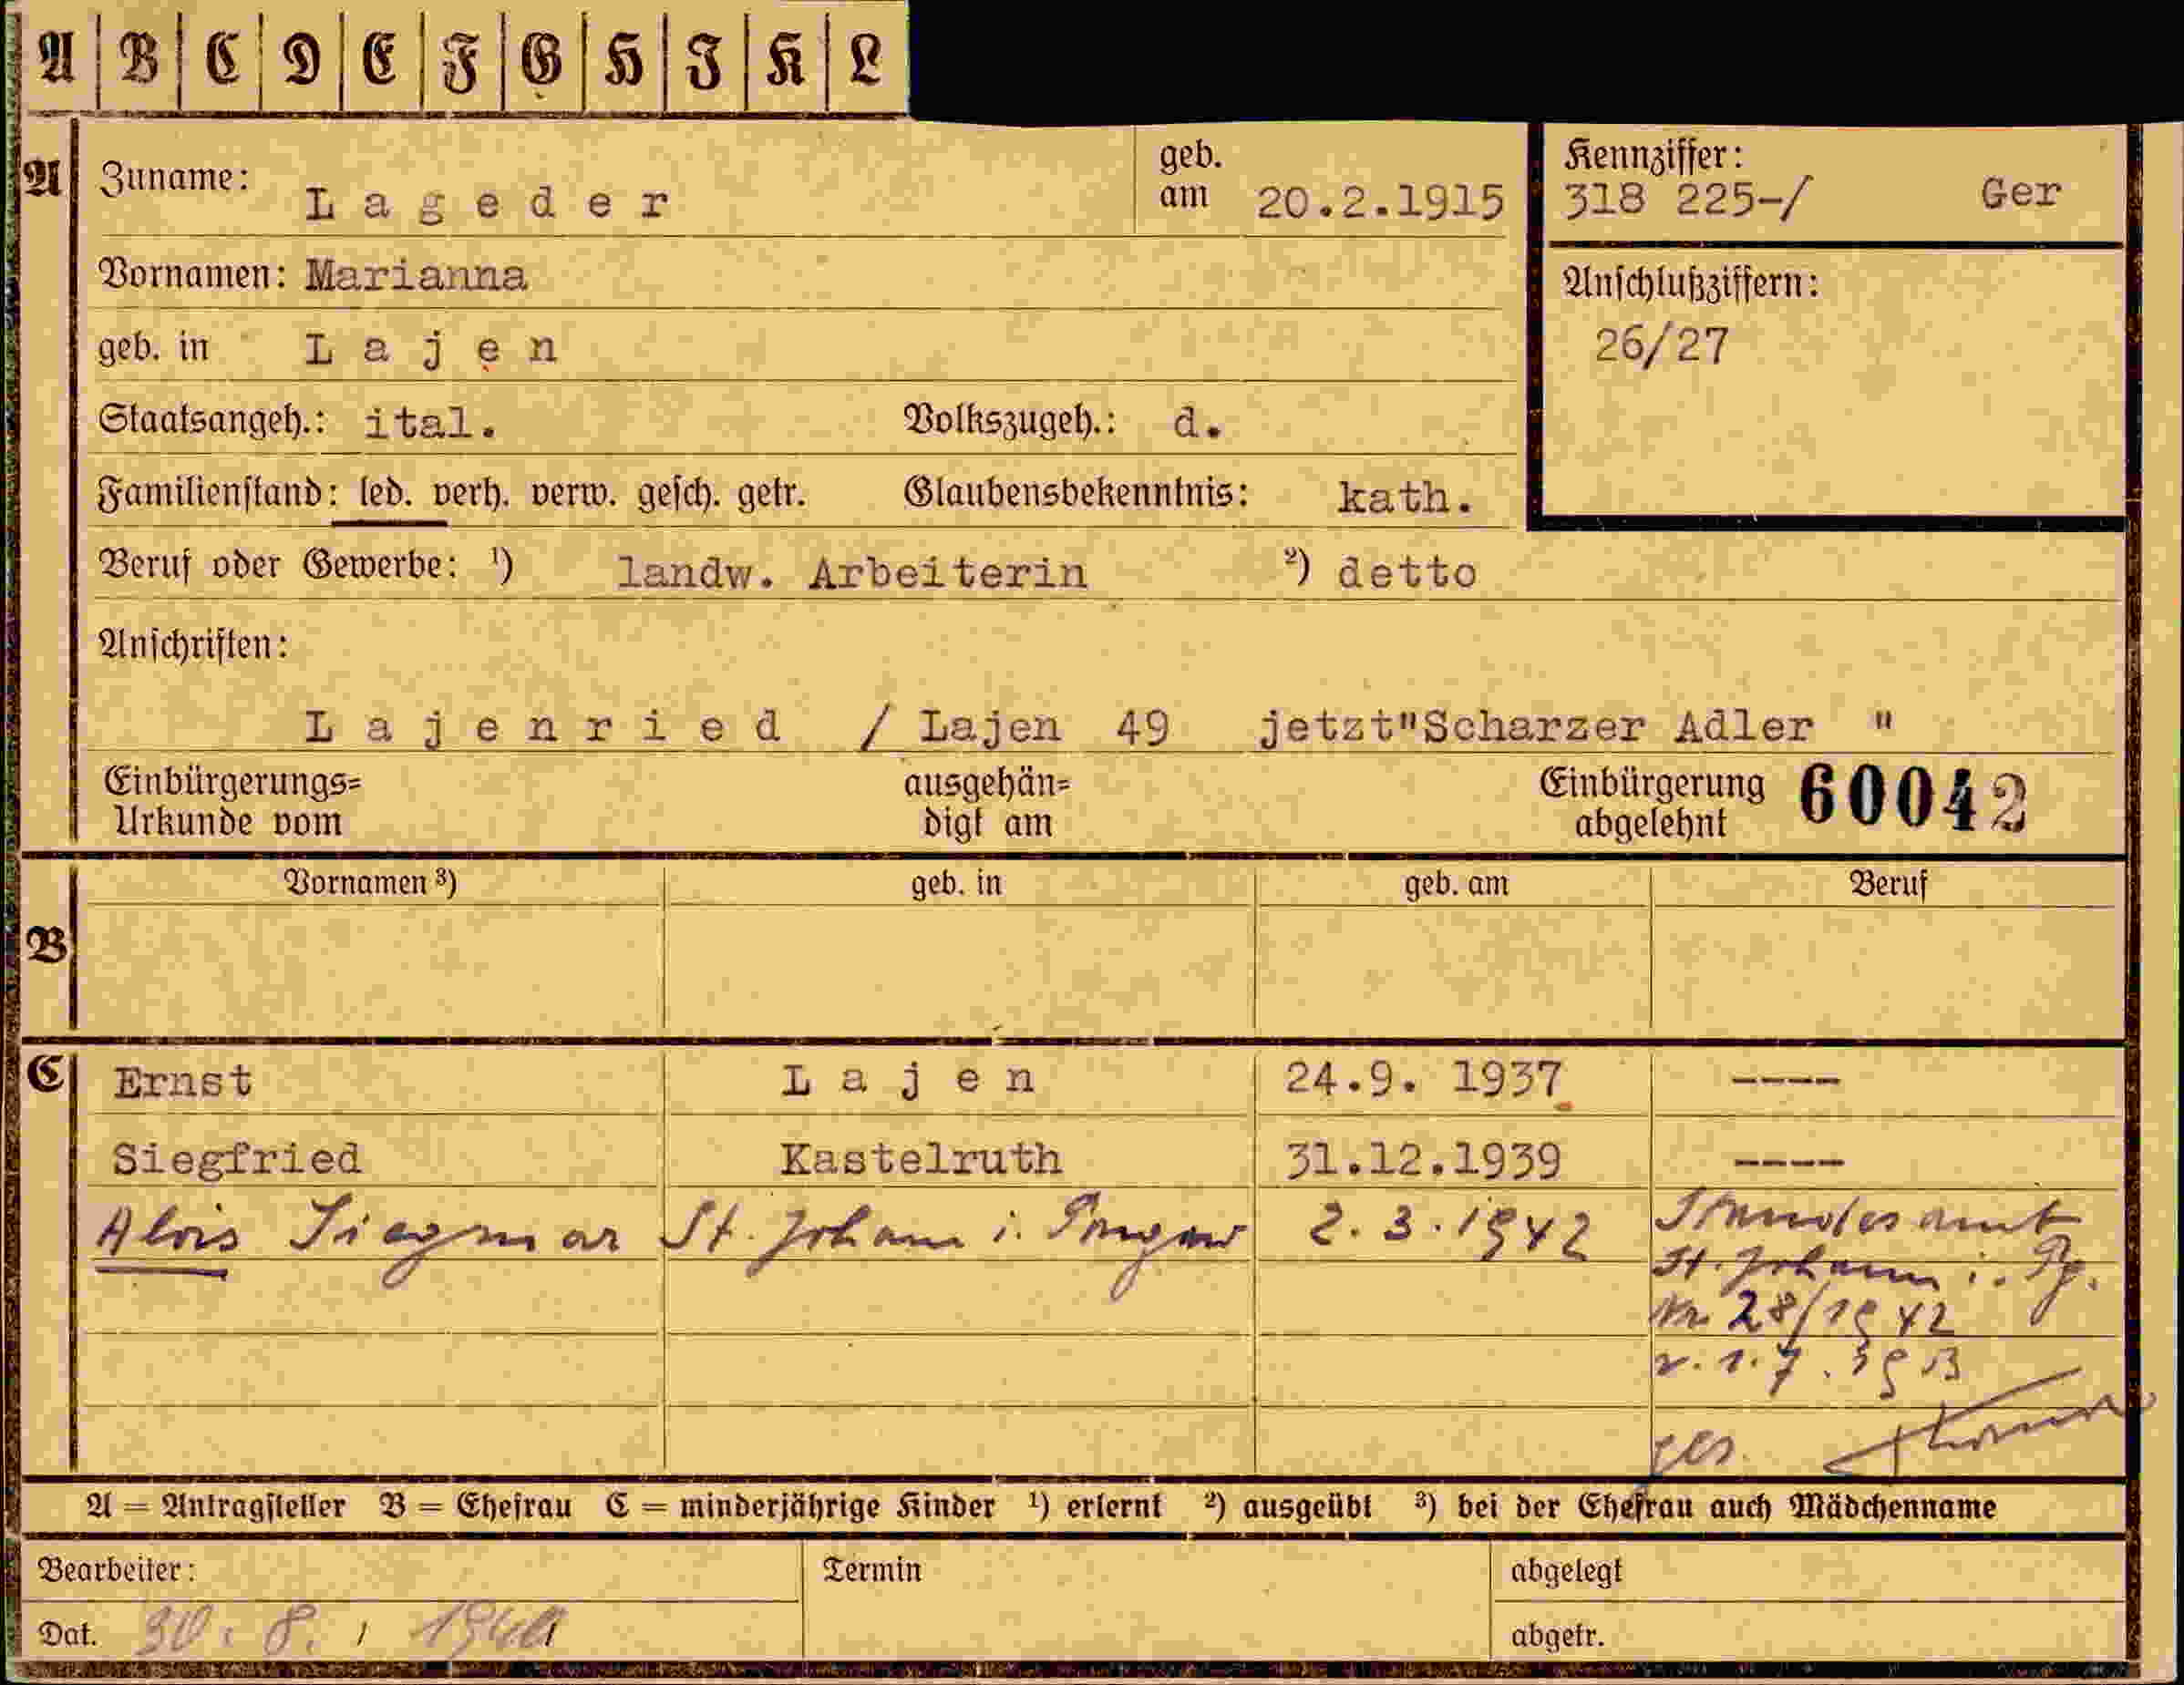 A B C D E F G H I K L
A Zuname: Lageder geb. am 20.2.1915
Kennziffer: 318 225-/ Ger
Vornamen: Marianna
Anschlußziffern:
26/27
geb. in Lajen
Staatsangeh.: ital. Volkszugeh.: d.
Familienstand: led. verh. verw. gesch. getr. Glaubensbekenntnis: kath.
Beruf oder Gewerbe: ¹) landw. Arbeiterin ²) detto
Anschriften:
Lajenried / Lajen 49 jetzt"Scharzer Adler "
Einbürgerungs= ausgehän= Einbürgerung 60042
Urkunde vom digt am abgelehnt
Vornamen ³) geb. in geb. am Beruf
B
C Ernst Lajen 24.9. 1937 ----
Siegfried Kastelruth 31.12.1939 ----
Alois Siegmar St. Johann i. Pongau 2. 3. 1942 Standesamt
St. Johann i. Pg.
Nr. 28/1942
v. 1. 7.
ges.
A = Antragsteller B = Ehefrau C = minderjährige Kinder ¹) erlernt ²) ausgeübt ³) bei der Ehefrau auch Mädchenname
Bearbeiter: Termin abgelegt
Dat. 30. 8. 1940 abgetr.